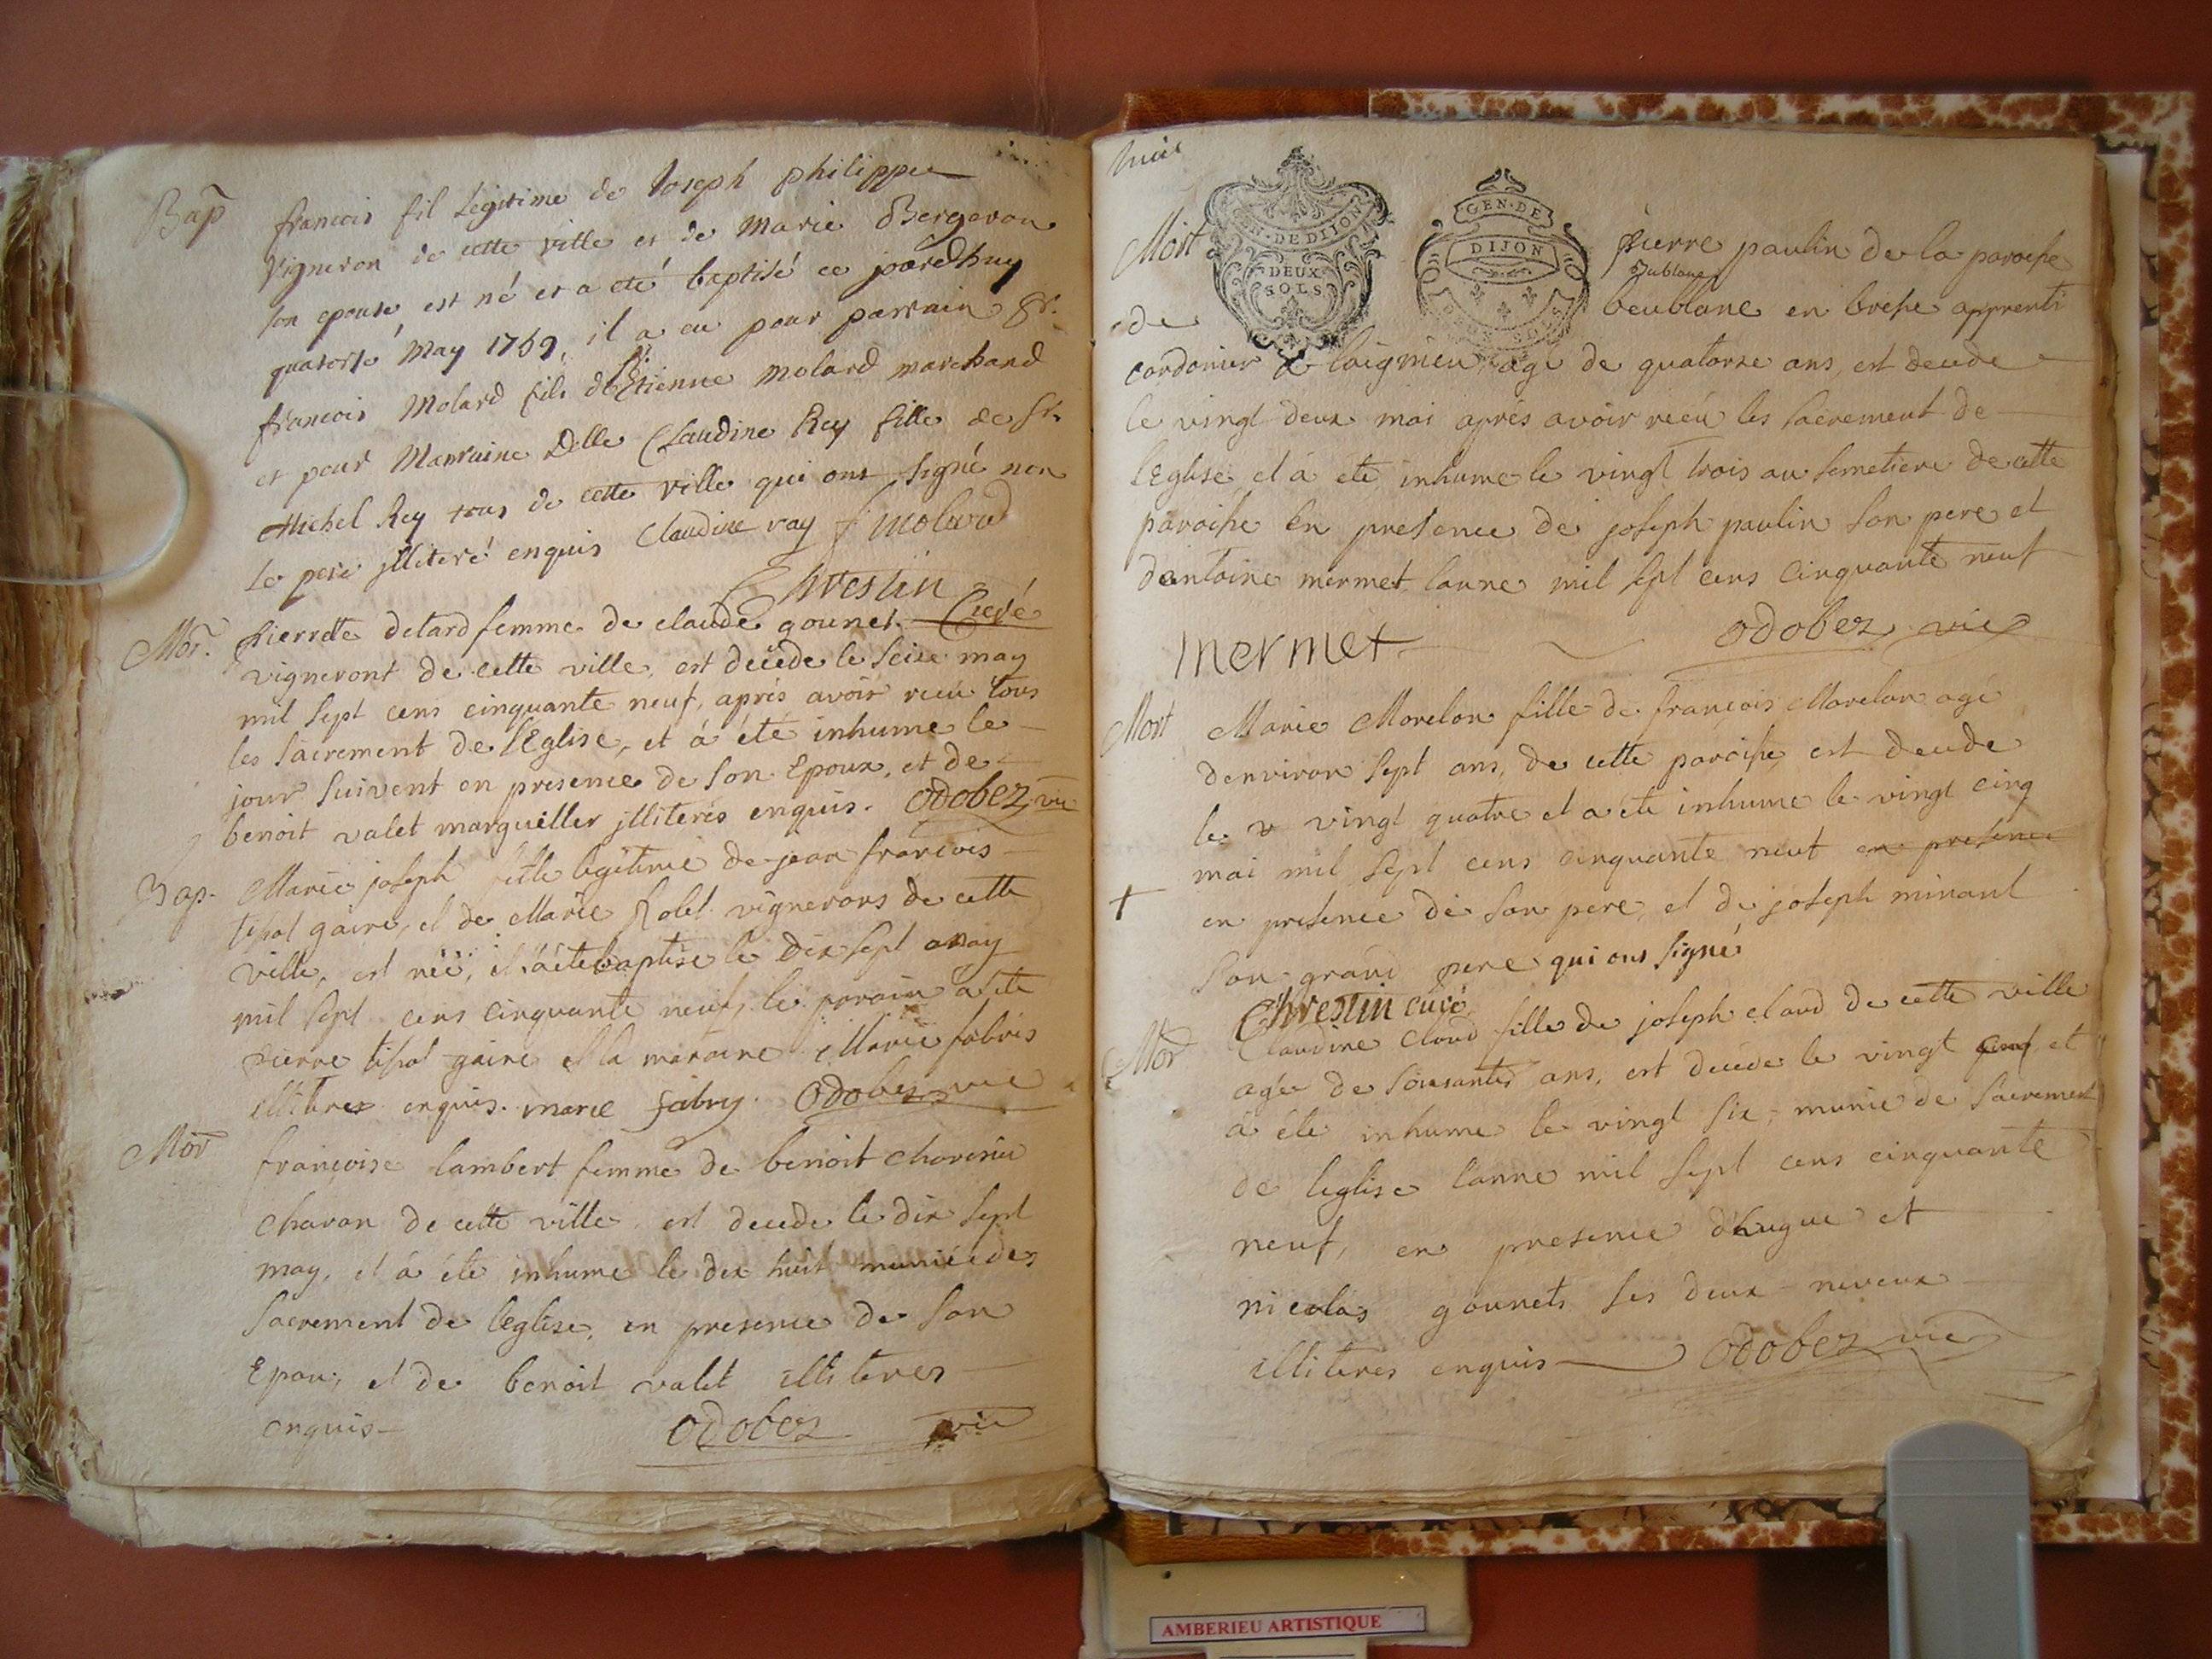 Bap francois fil Legitime de Joseph philippe
Vigneron de cette ville et de Marie Bergeron
son epouse est né et a eté baptisé ce jourdhuy
quatorse May 1759, il a eu pour parrain Sr.
francois Molard fils de Sr. Etienne Molard marchand
et pour Marraine Delle Claudine Rey fille de Sr.
Michel Rey tous de cette ville qui ont signé non
le pere jlliteré enquis Claudine ray f molard
Chrestin
Mor. pierrette detard femme de claude gounet
vigneront de cette ville, est decede le seize may
mil sept cens cinquante neuf, aprés avoir recu tous
les sacrement de l'Eglise, et á été inhume le
jour suivent en presence de son Epoux, et de
benoit valet marguiller jlliterés enquis. Odobez, vic
Bap. Marie joseph fille legitime de jean francois
tissot gaire, et de Marie Rolet vignerons de cette
ville, est née, et a ete baptise le dix sept may
mil sept cens cinquante neuf, le parain a ete
pierre tissot gaire et la maraine Marie fabris
illiteres enquis. marie fabry. Odobez vic
Mor françoise lambert femme de benoit
charan de cette ville est decede le dix sept
may, et á éte inhume le dix huit munié des
sacrement de l'eglise, en presence de son
Epoux, et de benoit valet illiteres
enquis Odobez vic
mai
GEN. DE DIJON
DEUX SOLS
GEN. DE
DIJON
Mort pierre paulin de la paroisse
de beublane en bresse apprenti
cordonier a lagnieu, agé de quatorze ans, est decede
le vingt deux mai aprés avoir recu les sacrement de
l'Eglise, et á eté inhume le vingt trois au semetiere de cette
paroisse en presence de joseph paulin son pere et
dantoine mermet, lanne mil sept cens cinquante neuf
mermet Odobez, vic
Mort Marie Morelon fille de francois Morelon agé
denviron sept ans, de cette paroisse, est decede
le vingt quatre et a été inhume le vingt cinq
mai mil sept cens cinquante neuf en presence
+ en presence de son pere, et de joseph minant
son grand pere qui ont signé
Chrestin curé
Mor Claudine Claud fille de joseph claud de cette ville
agée de soixantes ans, est decede le vingt cinq et
á éte inhume le vingt six, munie de sacrement
de leglise lanne mil sept cens cinquante
neuf, en presence d'hugue et
nicolas gounets ses deux neveux
illiteres enquis Odobez vic
AMBERIEU ARTISTIQUE